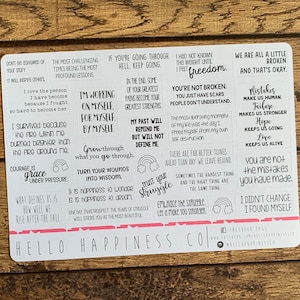 DON'T BE ASHAMED OF
YOUR STORY
IT WILL INSPIRE OTHERS.
I love the person
I have become
because I fought
so hard to become her
I survived because
the fire within me
burned brighter than
the fire around me.
COURAGE IS
grace
UNDER PRESSURE.
WHAT DEFINES US IS
HOW WELL WE
RISE AFTER THE FALL
THE MOST CHALLENGING
TIMES BRING THE MOST
PROFOUND LESSONS.
I'M WORKING
ON MYSELF
FOR MYSELF
BY MYSELF
Grow through
what you go through.
TURN YOUR WOUNDS
INTO WISDOM.
IT IS HAPPINESS TO WONDER
IT IS HAPPINESS TO DREAM.
IF YOU'RE GOING THROUGH
HELL, KEEP GOING.
IN THE END SOME
OF YOUR GREATEST
PAINS BECOME YOUR
GREATEST STRENGTHS.
MY PAST WILL
REMIND ME
BUT WILL NOT
DEFINE ME
trust your
struggle
EMBRACE THE STRUGGLE
LET IT MAKE YOU STRONGER.
I HAD NOT KNOWN
THE WEIGHT UNTIL
I FELT
freedom.
YOU'RE NOT BROKEN.
YOU JUST HAVE SCARS
PEOPLE DON'T UNDERSTAND.
THERE ARE FAR BETTER THINGS
AHEAD THAN ANY WE LEAVE BEHIND.
SOMETIMES THE HARDEST THING
AND THE RIGHT THING
ARE THE SAME
WE ARE ALL A LITTLE
BROKEN
AND THAT'S OKAY.
Mistakes
MAKE US HUMAN
Failure
MAKES US STRONGER
Hope
KEEPS US GOING
Love
KEEPS US ALIVE
YOU ARE NOT
THE MISTAKES
YOU HAVE MADE.
I DIDN'T CHANGE
I FOUND MYSELF.
HELLO HAPPINESS CO